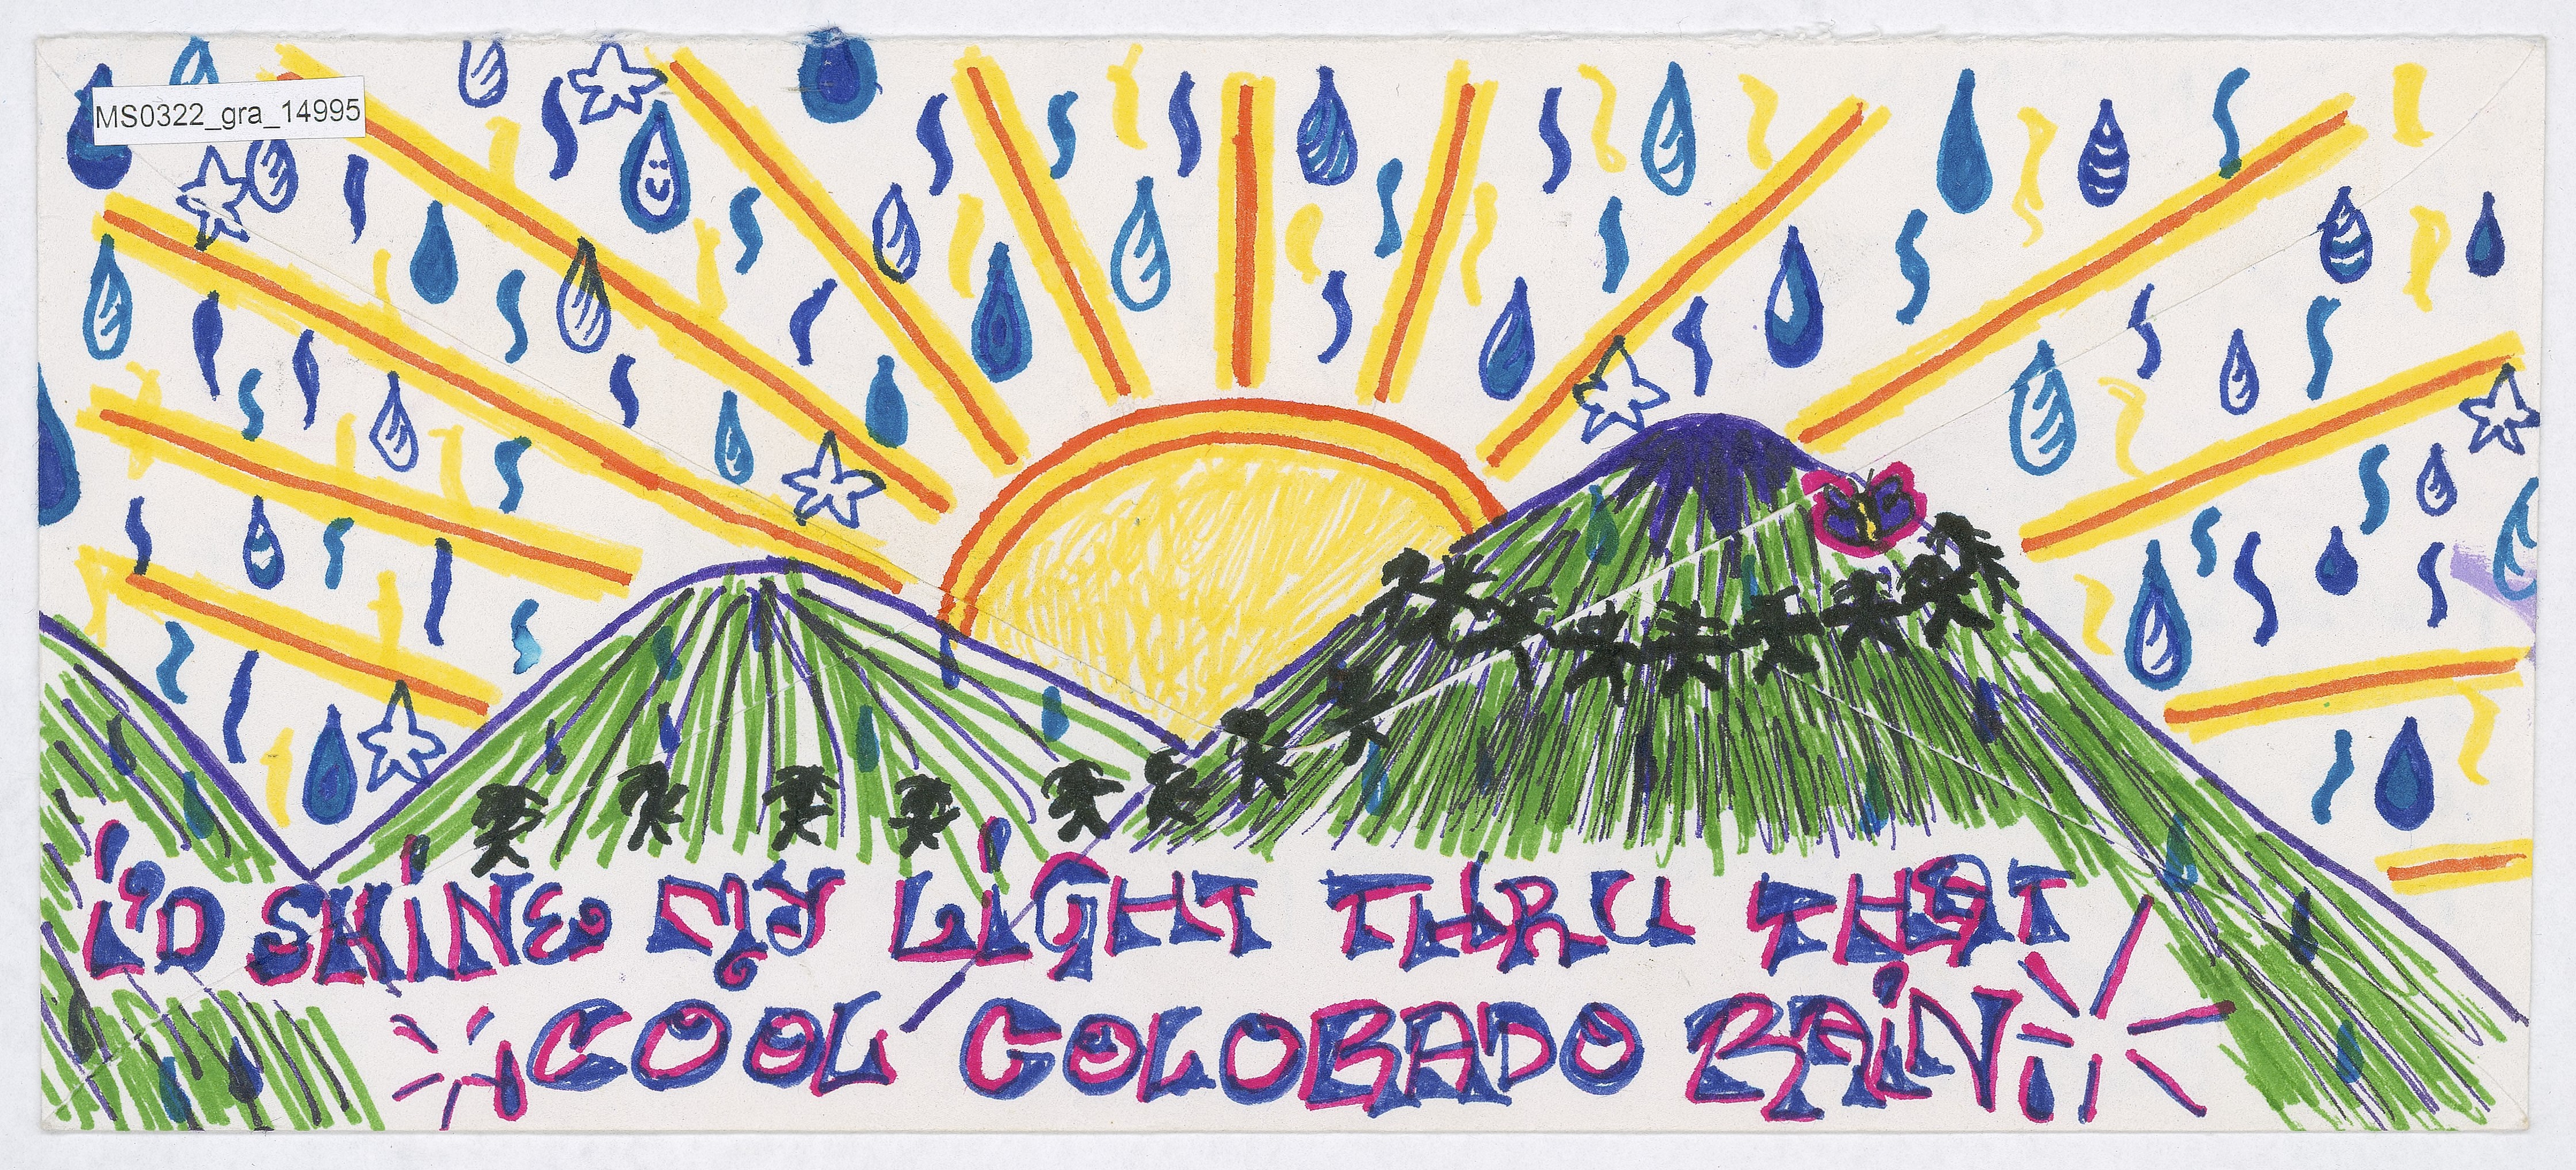 MS0322_gra_14995
I'D SHINE MY LIGHT THRU THAT
COOL COLORADO RAIN